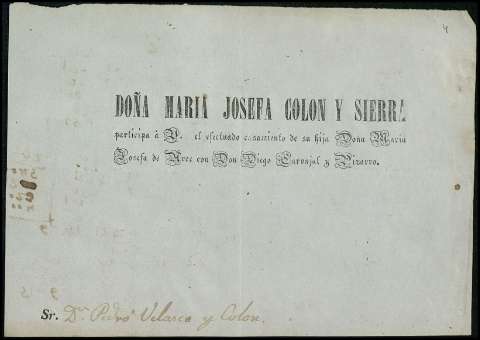 DOÑA MARIA JOSEFA COLON Y SIERRA
participa à V. el efectuado casamiento de su hija Doña Maria
Josefa de Arce con Don Diego Carvajal y Pizarro.
Sr. Dn. Pedro Velarca y Colon.